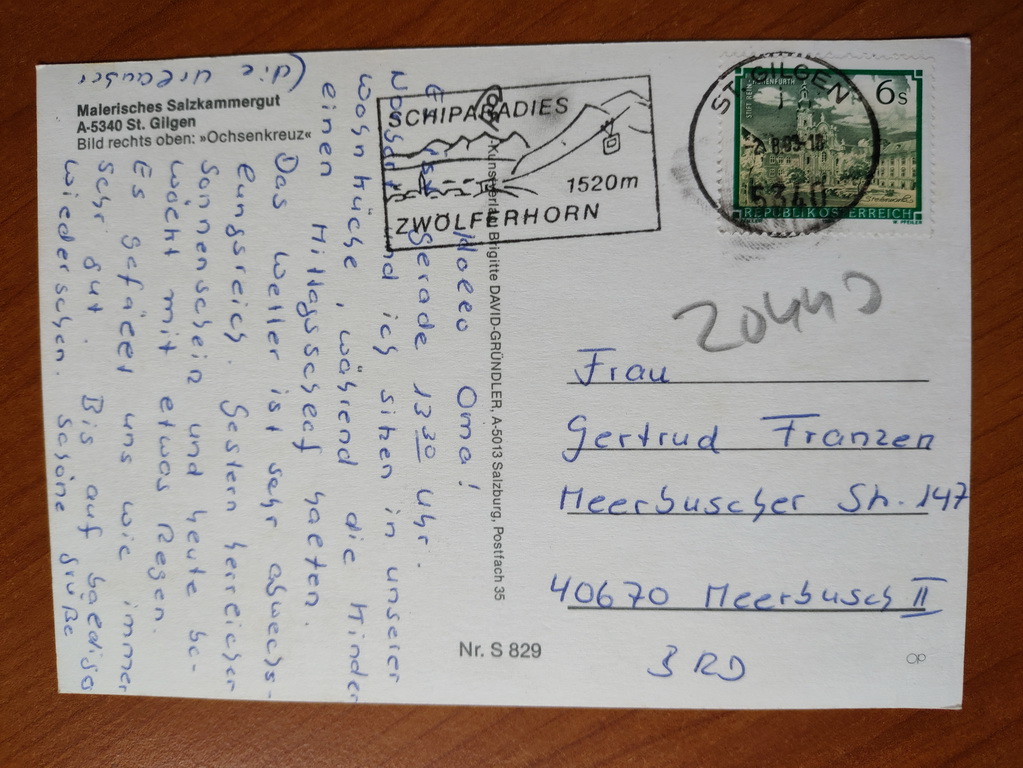 Malerisches Salzkammergut
A-5340 St. Gilgen
Bild rechts oben: »Ochsenkreuz«
SCHIPARADIES
1520m
ZWÖLFERHORN
ST. GILGEN
5340
6s
REPUBLIK ÖSTERREICH
Hallo Oma!
Es ist gerade 13 30 Uhr.
und ich sitzen in unserer
Wohnküche, während die Kinder
einen Mitagsschlaf halten.
Das Wetter ist sehr abwechs-
lungsreich. Gestern herrlicher
Sonnenschein und heute be-
wölkt mit etwas Regen.
Es gefällt uns wie immer
sehr gut. Bis auf
Wiedersehen. Schöne Grüße
(die Urlauber
Kunstverlag Brigitte DAVID-GRÜNDLER, A-5013 Salzburg, Postfach 35
Nr. S 829
20440
Frau
Gertrud Franzen
Meerbuscher Str. 147
40670 Meerbusch II
BRD